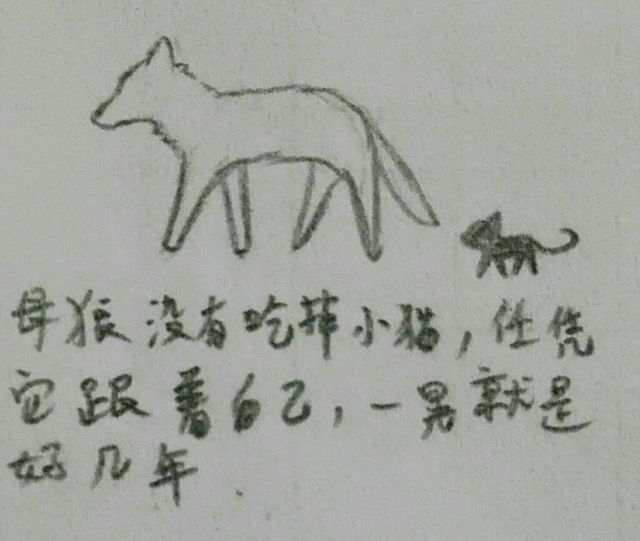 母狼没有吃掉小猫，任凭
它跟着自己，一晃就是
好几年